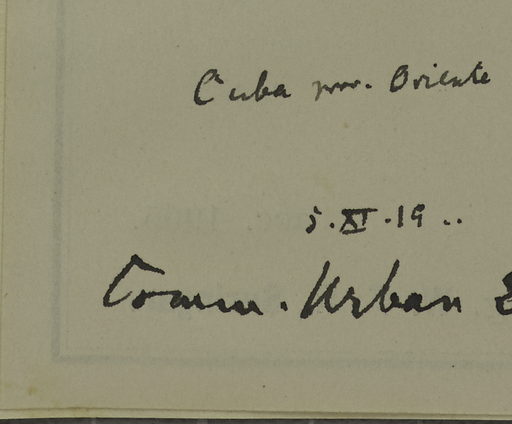 Cuba prov. Oriente
5.XI.19..
Comm. Urban